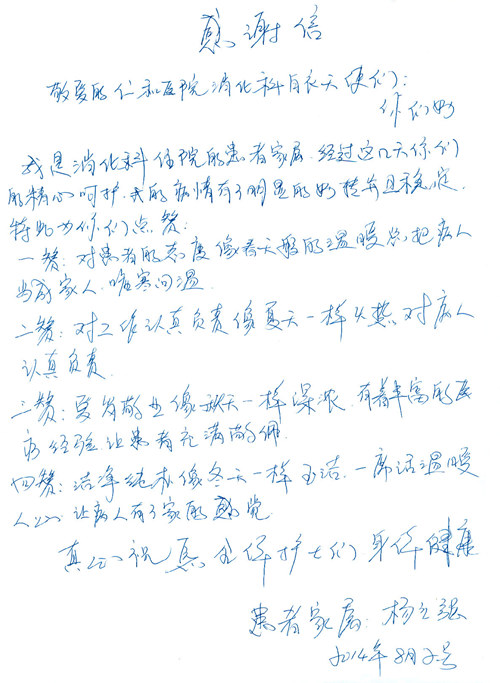 感谢信
敬爱的仁和医院消化科白衣天使们：
你们好
我是消化科住院的患者家属.经过这几天你们
的精心呵护.我的病情有了明显的好转并且稳定.
特此为你们点赞：
一赞：对患者的态度像春天般的温暖总把病人
当成家人.嘘寒问温.
二赞：对工作认真负责像夏天一样火热.对病人
认真负责.
三赞：爱岗敬业像秋天一样深浓.有着丰富的医
疗经验让患者充满敬佩.
四赞：洁净纯朴像冬天一样玉洁.一席话温暖
人心.让病人有了家的感觉.
真心祝 全体护士们身体健康
患者家属：杨
2014年8月2号